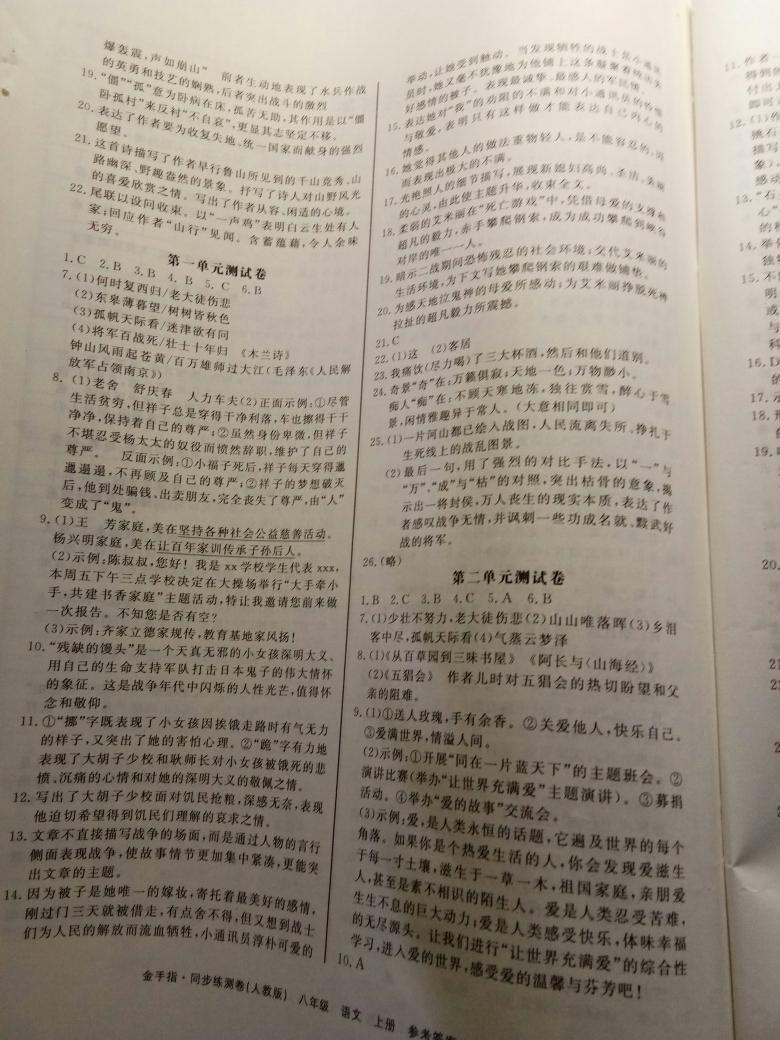 爆轰震,声如崩山”　前者生动地表现了水兵作战
的英勇和技艺的娴熟,后者突出战斗的激烈
19.“僵”“孤”意为卧病在床,孤苦无助,其作用是以“僵
卧孤村”来反衬“不自哀”,更显其志坚定不移。
20.表达了作者要为收复失地、统一国家而献身的强烈
愿望。
21.这首诗描写了作者早行鲁山所见到的千山竞秀、山
路幽深、野趣盎然的景象。抒写了诗人对山野风光
的喜爱欣赏之情。写出了作者从容、闲适的心境。
22.尾联以设问收束。以“一声鸡”表明白云生处有人
家;回应作者“山行”见闻。含蓄蕴藉,令人余味
无穷。
第一单元测试卷
1.C　2.B　3.B　4.B　5.C　6.B
7.(1)何时复西归/老大徒伤悲
(2)东皋薄暮望/树树皆秋色
(3)孤帆天际看/迷津欲有问
(4)将军百战死/壮士十年归　《木兰诗》
钟山风雨起苍黄/百万雄师过大江(毛泽东《人民解
放军占领南京》)
8.(1)老舍　舒庆春　人力车夫(2)正面示例:①尽管
生活贫穷,但祥子总是穿得干净利落,车也擦得干干
净净,保持着自己的尊严;②虽然身份卑微,但祥子
不堪忍受杨太太的奴役而愤然辞职,维护了自己的
尊严。　反面示例:①小福子死后,祥子每天穿得邋
邋遢遢,不再顾及自己的尊严;②祥子的梦想破灭
后,他到处骗钱、出卖朋友,完全丧失了尊严,由“人”
变成了“鬼”。
9.(1)王　芳家庭,美在坚持各种社会公益慈善活动。
杨兴明家庭,美在让百年家训传承子孙后人。
(2)示例:陈叔叔,您好!我是xx学校学生代表xxx,
本周五下午三点学校决定在大操场举行“大手牵小
手,共建书香家庭”主题活动,特让我邀请您前来做
一次报告。不知您是否有空?
(3)示例:齐家立德家规传,教育基地家风扬!
10.“残缺的馒头”是一个天真无邪的小女孩深明大义、
用自己的生命支持军队打击日本鬼子的伟大情怀
的象征。这是战争年代中闪烁的人性光芒,值得怀
念和敬仰。
11.①“挪”字既表现了小女孩因挨饿走路时有气无力
的样子,又突出了她的害怕心理。②“跪”字有力地
表现了大胡子少校和耿师长对小女孩被饿死的悲
愤、沉痛的心情和对她的深明大义的敬佩之情。
12.写出了大胡子少校面对饥民抢粮,深感无奈,表现
他迫切希望得到饥民们理解的哀求之情。
13.文章不直接描写战争的场面,而是通过人物的言行
侧面表现战争,使故事情节更加集中紧凑,更能突
出文章的主题。
14.因为被子是她唯一的嫁妆,寄托着最美好的感情,
刚过门三天就被借走,有点舍不得,但又想到战士
们为人民的解放而流血牺牲,小通讯员淳朴可爱的
举动,让她受到触动。当发现牺牲的战士是小通讯
员时,她又毫不犹豫地为他铺上这条凝聚着
好感情的被子。表现最诚挚、最感人的军民情。
15.表达她对“我”的劝阻的不满和对小通讯员的
与敬爱,表明只有这样做才能表达自己内心的
情感。
16.她觉得其他人的做法重物轻人,是不能容忍的,
而表现出极大的不满。
17.光艳照人的细节描写,展现新媳妇高尚、圣洁、美丽
的心灵,由此使主题升华,收束全文。
18.柔弱的艾米丽在“死亡游戏”中,凭借母爱的支撑和
超凡的毅力,赤手攀爬钢索,成为成功攀爬到峡谷
对岸的唯一一人。
19.暗示二战期间恐怖残忍的社会环境;交代艾米丽的
生活环境,为下文写她攀爬钢索的艰难做铺垫。
20.为感天地泣鬼神的母爱所感动;为艾米丽挣脱死神
拉扯的超凡毅力所震撼。
21.C
22.(1)这　(2)客居
23.我痛饮(尽力喝)了三大杯酒,然后和他们道别。
24.奇景“奇”在:万籁俱寂;天地一色;万物渺小。
痴人“痴”在:不顾天寒地冻,独往赏雪,醉心于雪
景,闲情雅趣异于常人。(大意相同即可)
25.(1)一片河山都已绘入战图,人民流离失所、挣扎于
生死线上的战乱图景。
(2)最后一句,用了强烈的对比手法,以“一”与
“万”、“成”与“枯”的对照,突出枯骨的意象,揭
示出一将封侯,万人丧生的现实本质,表达了作
者感叹战争无情,并讽刺一些功成名就、黩武好
战的将军。
26.(略)
第二单元测试卷
1.B　2.C　3.B　4.C　5.A　6.B
7.(1)少壮不努力,老大徒伤悲(2)山山唯落晖(3)乡泪
客中尽,孤帆天际看(4)气蒸云梦泽
8.(1)《从百草园到三味书屋》　《阿长与〈山海经〉》
(2)《五猖会》　作者儿时对五猖会的热切盼望和父
亲的阻难。
9.(1)①送人玫瑰,手有余香。②关爱他人,快乐自己。
③爱满世界,情溢人间。
(2)示例:①开展“同在一片蓝天下”的主题班会。②
演讲比赛(举办“让世界充满爱”主题演讲)。③募捐
活动。④举办“爱的故事”交流会。
(3)示例:爱,是人类永恒的话题,它遍及世界的每个
角落。如果你是个热爱生活的人,你会发现爱滋生
于每一寸土壤,滋生于一草一木,祖国家庭,亲朋爱
人,甚至是素不相识的陌生人。爱是人类忍受苦难,
生生不息的巨大动力;爱是人类感受快乐,体味幸福
的无尽源头。让我们进行“让世界充满爱”的综合性
学习,进入爱的世界,感受爱的温馨与芬芳吧!
10.A
金手指·同步练测卷(人教版)　八年级　语文　上册　参考答案
11.作者
得到的
付出
即可
12.(1)作
掖石
描写
象)
感动
13.“石
心”
的
14.举
独
15.不
明
或
与
16.D
的
17.示
18.
19.
20.
21
22
2